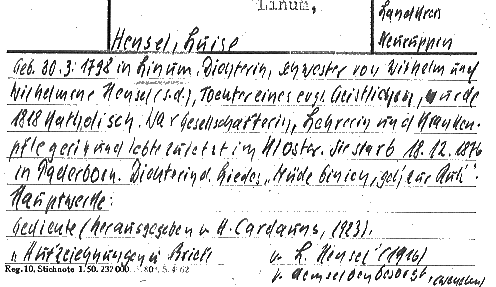 Linum,
Landkreis
Neuruppin
Hensel, Luise
Geb. 30.3.1798 in Linum. Dichterin, Schwester von Wilhelm und
Wilhelmine Hensel (s.d.), Tochter eines evgl. Geistlichen, wurde
1818 Katholisch. War Gesellschafterin, Lehrerin und Kranken-
pflegerin und lebte zuletzt im Kloster. Sie starb 18.12.1876
in Paderborn. Dichterin d. Liedes „Müde bin ich, geh zur Ruh".
Hauptwerke:
Gedichte (herausgegeben v. H. Cardauns, 1923).
„ Aufzeichnungen u. Briefe v. L. Hensel" (1916)
v. demselben besorgt.
Reg. 10, Stichnote 1. 50. 237 000 5. 4. 62